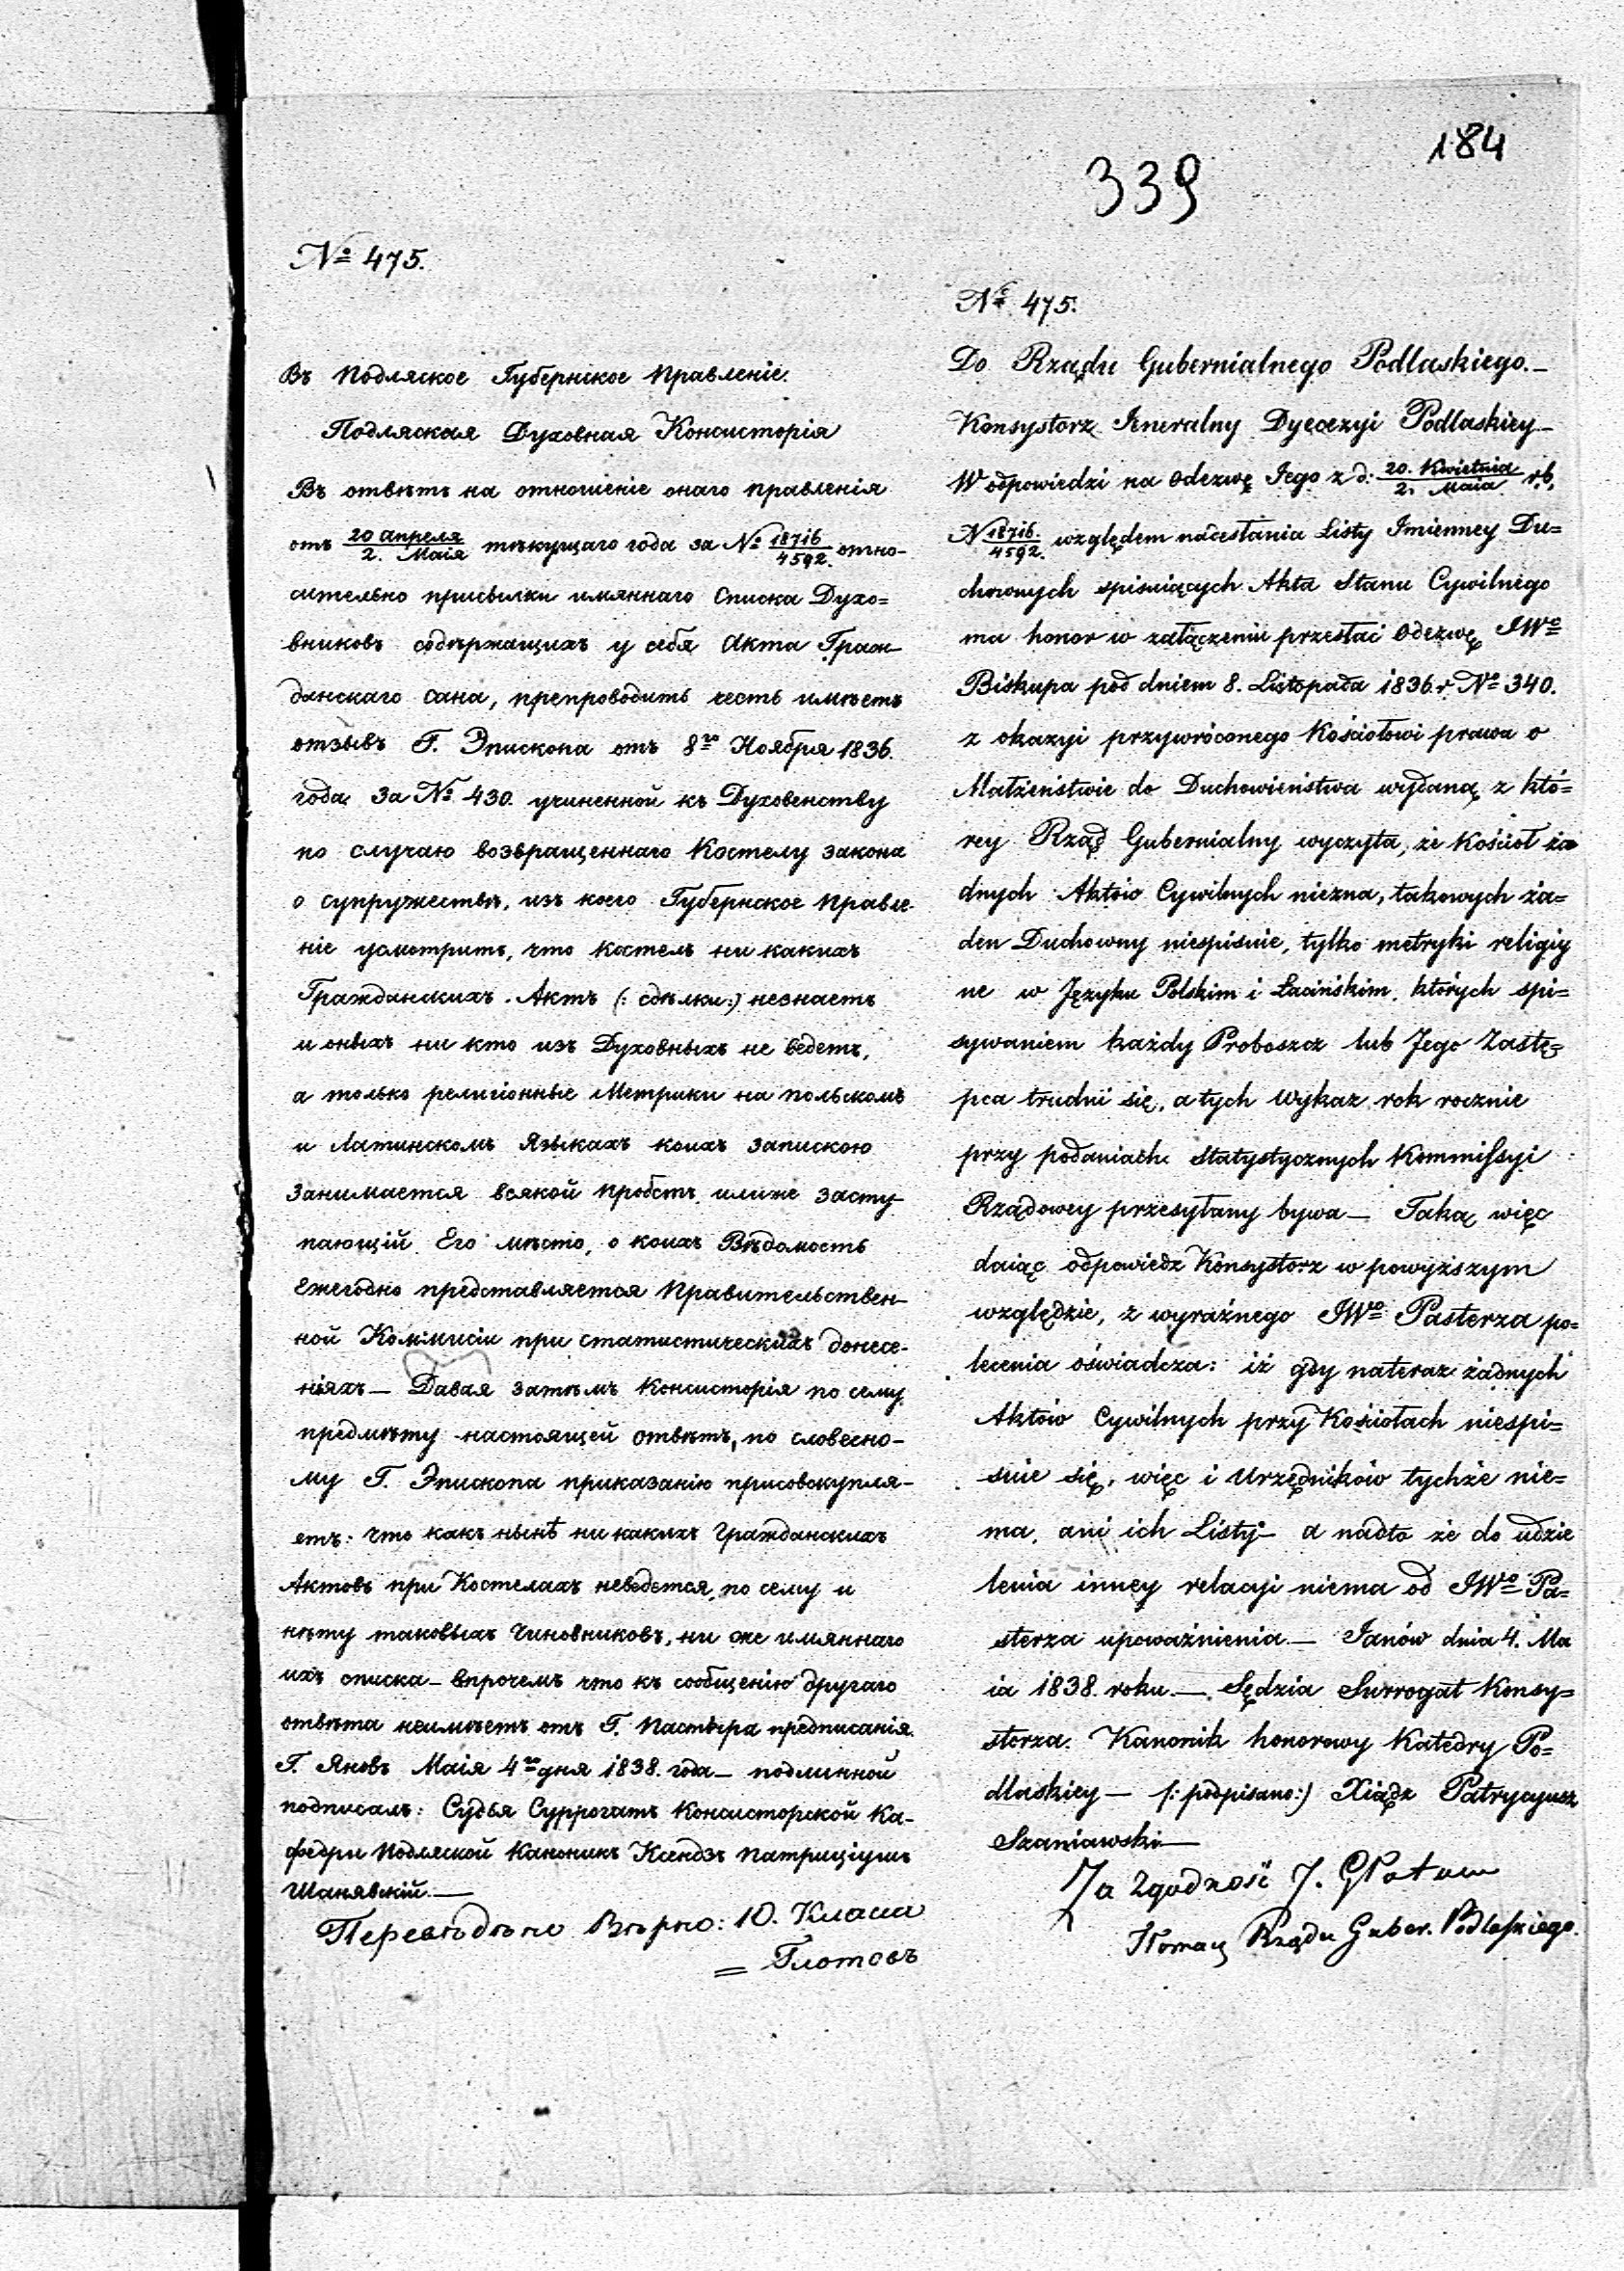 184
339
№ 475.
Въ Подляское Губернское Правленіе.
Подляская Духовная Консисторія
Въ отвѣтъ на отношеніе онаго Правленія
отъ 20 апреля / 2. Маія тѣкущаго года за № 18716 / 4592. отно-
сительно присылки имяннаго Списка Духо=
вниковъ содѣржащихъ у себя Акта Граж-
данскаго сана, препроводить честь имѣетъ
отзывъ Г. Эпископа отъ 8го Ноября 1836.
года за № 430. учиненной къ Духовенству
по случаю возвращеннаго Костелу закона
о супружествѣ, изъ коего Губернское Правле-
ніе усмотритъ, что костелъ ни какихъ
Гражданскихъ Актъ (: сдѣлки:) незнаетъ
и оныхъ ни кто изъ Духовныхъ не ведетъ,
а только религіонные Метрики на польскомъ
и Латинскомъ Языкахъ коихъ запискою
занимается всякой Пробстъ илиже засту-
пающій Его мѣсто, о коихъ Вѣдомость
ежегодно представляется Правительствен-
ной Коммисіи при статистическихъ донесе-
ніяхъ — Давая затѣмъ Консисторія по сему
предмѣту настоящей отвѣтъ, по словесно-
му Г. Эпископа приказанію присовокупля-
етъ: что какъ нынѣ ни какихъ Гражданскихъ
Актовъ при Костелахъ неведется, по сему и
нѣту таковыхъ Чиновниковъ, ни же имяннаго
ихъ списка — впрочемъ что къ сообщенію другаго
отвѣта неимѣетъ отъ Г. Пастыра предписанія.
Г. Яновъ Маія 4го дня 1838. года — подлинной
подписалъ: Судья Суррогатъ Консисторской Ка-
федри Подляской Каноникъ Ксендзъ Патриціушъ
Шанявскій. —
Перевѣдѣно Вѣрно: 10. Класса
= Глотовъ
№ 475.
Do Rządu Gubernialnego Podlaskiego. —
Konsystorz Ieneralny Dyecezyi Podlaskiey —
W odpowiedzi na Odezwę Jego z d: 20. Kwietnia / 2. Maia r.b.
N 18716. / 4592. względem nadesłania Listy Imienney Du=
chownych spisuiących Akta Stanu Cywilnego
ma honor w załączeniu przesłać Odezwę JWo
Biskupa pod dniem 8. Listopada 1836. r. No 340.
z okazyi przywróconego Kościołowi prawa o
Małżeństwie do Duchowieństwa wydaną z któ=
rey Rząd Gubernialny wyczyta, że Kościoł ża
dnych Aktów Cywilnych niezna, takowych ża=
den Duchowny niespisuie, tylko metryki religiy
ne w Języku Polskim i Łacińskim, których spi=
sywaniem każdy Proboszcz lub Jego Zastę=
pca trudni się, a tych Wykaz rok rocznie
przy podaniach Statystycznych Kommissyi
Rządowey przesyłany bywa — Taką więc
daiąc odpowiedz Konsystorz w powyższym
względzie, z wyraźnego JWo Pasterza po=
lecenia oświadcza: iż gdy nateraz żadnych
Aktów Cywilnych przy Kościołach niespi=
suie się, więc i Urzędników tychże nie=
ma, ani ich Listy — a nadto że do udzie
lenia inney relacyi niema od JWo Pa=
sterza upoważnienia — Janów dnia 4. Ma
ia 1838. roku — Sędzia Surrogat Konsy=
storza. Kanonik honorowy Katedry Po=
dlaskiey — (: podpisano:) Xiądz Patrycyusz
Szaniawski —
Za Zgodność J. Głotow
Tłomacz Rządu Guber. Podlaskiego.